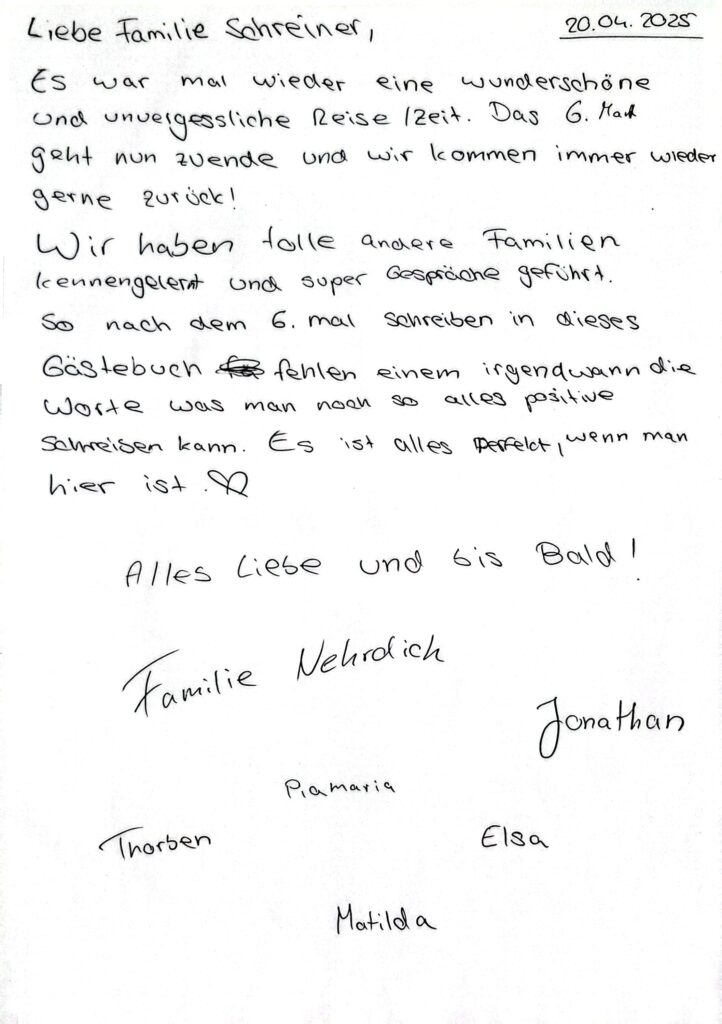 Liebe Familie Schreiner,
20.04.2025
Es war mal wieder eine wunderschöne
und unvergessliche Reise/Zeit. Das 6.
geht nun zuende und wir kommen immer wieder
gerne zurück!
Wir haben tolle andere Familien
kennengelernt und super Gespräche geführt.
So nach dem 6. mal schreiben in dieses
Gästebuch fehlen einem irgendwann die
Worte was man noch so alles positive
schreiben kann. Es ist alles perfekt, wenn man
hier ist. ♡
Alles Liebe und bis Bald!
Familie Nehrdich
Jonathan
Piamaria
Thorben
Elsa
Matilda